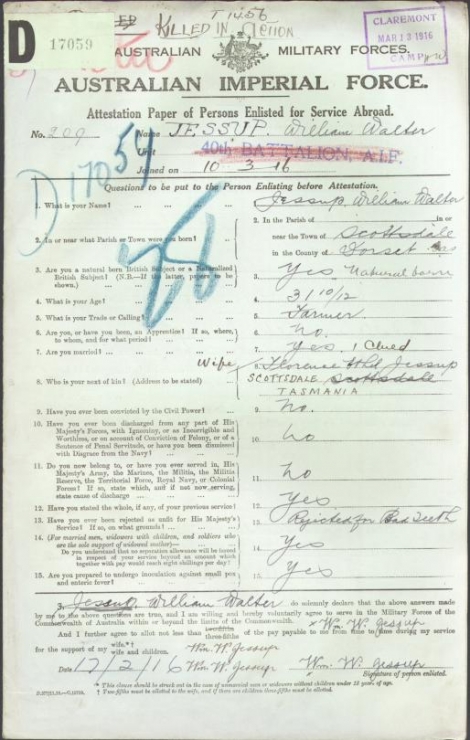 D 17059
KILLED IN Action
T 1456
CLAREMONT
MAR 13 1916
CAMP
AUSTRALIAN MILITARY FORCES.
AUSTRALIAN IMPERIAL FORCE.
Attestation Paper of Persons Enlisted for Service Abroad.
No. 209 Name JESSUP. William Walter
Unit 40th BATTALION, A.I.F.
Joined on 10 3 16
D17059
Questions to be put to the Person Enlisting before Attestation.
1. What is your Name? Jessup William Walter
2. In or near what Parish or Town were you born? 2. In the Parish of in or
near the Town of Scottsdale
in the County of Dorset
3. Are you a natural born British Subject or a Naturalized
British Subject? (N.B.—If the latter, papers to be
shown.) 3. Yes Natural born
4. What is your Age? 4. 31 10/12
5. What is your Trade or Calling? 5. Farmer
6. Are you, or have you been, an Apprentice? If so, where,
to whom, and for what period? 6. No.
7. Are you married? 7. Yes. 1 Child
8. Who is your next of kin? (Address to be stated) Wife 8. Florence Jessup
SCOTTSDALE Scottsdale
TASMANIA
9. Have you ever been convicted by the Civil Power? 9. No.
10. Have you ever been discharged from any part of His
Majesty's Forces, with Ignominy, or as Incorrigible and
Worthless, or on account of Conviction of Felony, or of a
Sentence of Penal Servitude, or have you been dismissed
with Disgrace from the Navy? 10. No
11. Do you now belong to, or have you ever served in, His
Majesty's Army, the Marines, the Militia, the Militia
Reserve, the Territorial Force, Royal Navy, or Colonial
Forces? If so, state which, and if not now serving,
state cause of discharge 11. No
12. Have you stated the whole, if any, of your previous service? 12. Yes
13. Have you ever been rejected as unfit for His Majesty's
Service? If so, on what grounds? 13. Rejected for Bad Teeth
14. (For married men, widowers with children, and soldiers who
are the sole support of widowed mother)—
Do you understand that no separation allowance will be issued
in respect of your service beyond an amount which
together with pay would reach eight shillings per day? 14. Yes
15. Are you prepared to undergo inoculation against small pox
and enteric fever? 15. Yes
I, Jessup William Walter do solemnly declare that the above answers made
by me to the above questions are true, and I am willing and hereby voluntarily agree to serve in the Military Forces of the
Commonwealth of Australia within or beyond the limits of the Commonwealth. × Wm. W. Jessup
And I further agree to allot not less than two-fifths three-fifths of the pay payable to me from time to time during my service
for the support of my wife.*†
wife and children. Wm. W. Jessup
Date 17/2/16 Wm W. Jessup Wm. W. Jessup
Signature of person enlisted.
* This clause should be struck out in the case of unmarried men or widowers without children under 18 years of age.
† Two fifths must be allotted to the wife, and if there are children three fifths must be allotted.